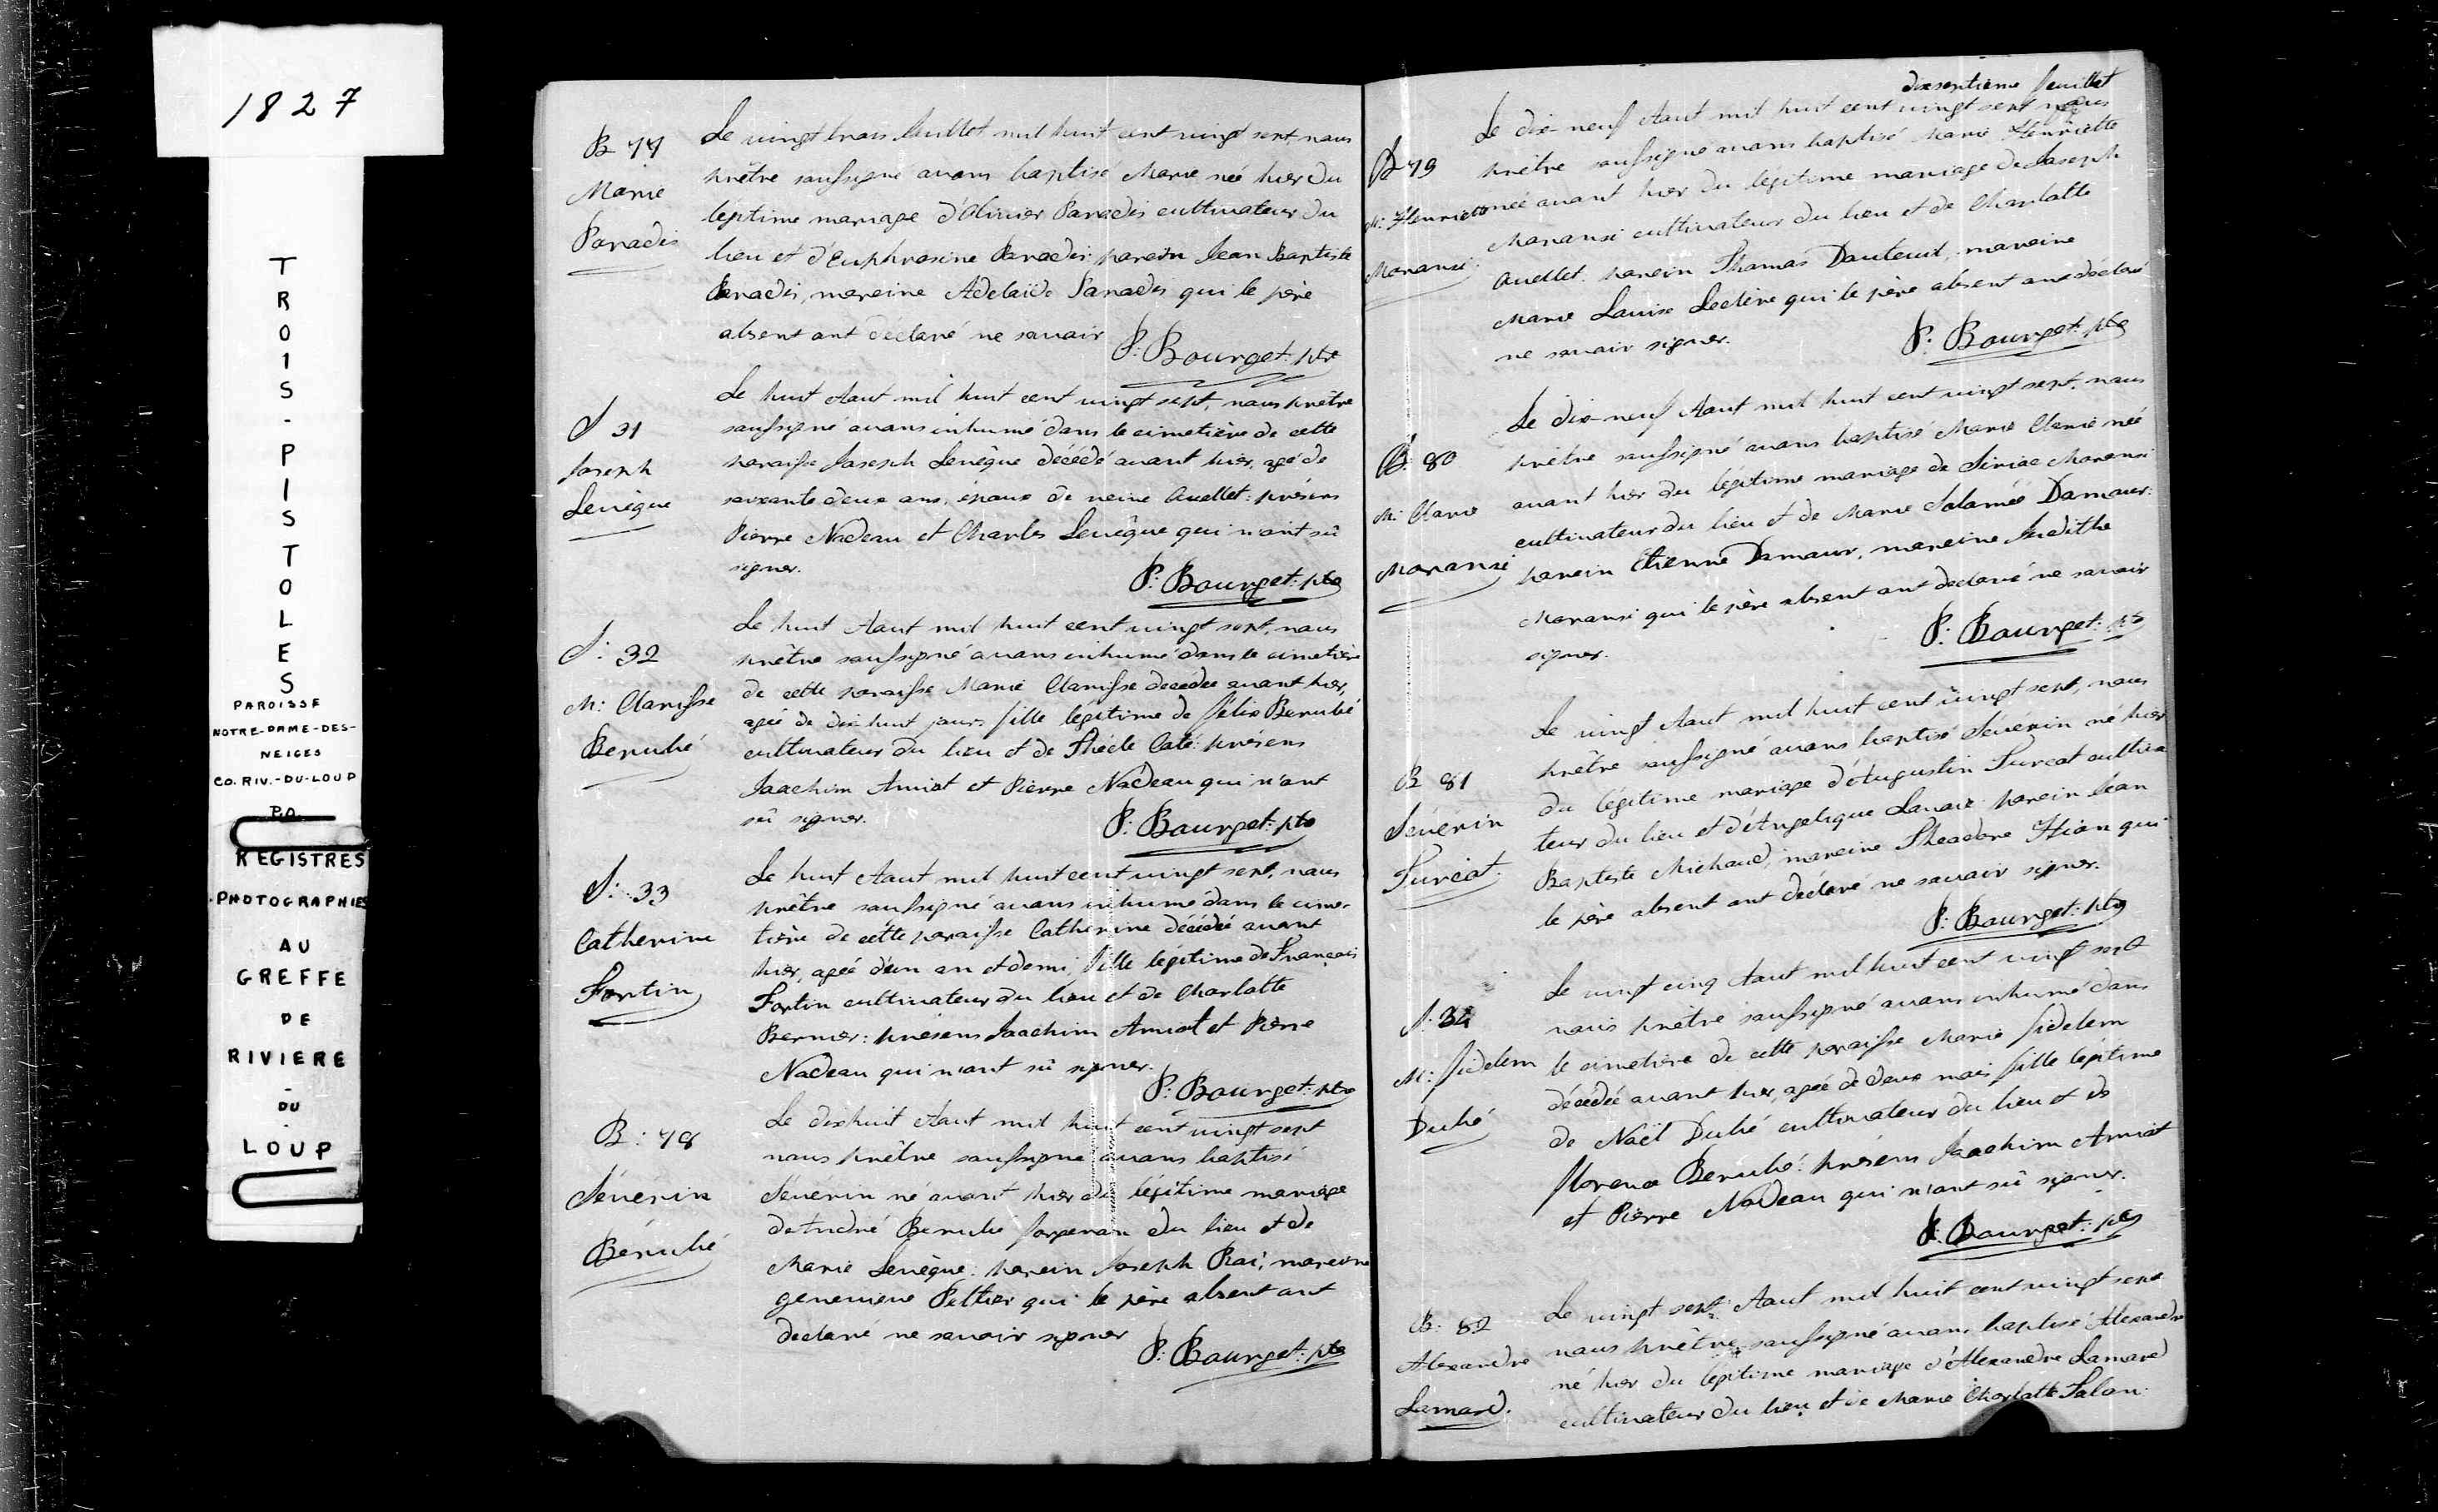 1827
TROIS-PISTOLES
PAROISSE
NOTRE-DAME-DES-
NEIGES
CO. RIV.-DU-LOUP
P.Q.
REGISTRES
PHOTOGRAPHIES
AU
GREFFE
DE
RIVIERE
-
DU
-
LOUP
B 77
Marie
Paradis
Le vingt trois Juillet mil huit cent vingt sept, nous
prêtre soussigné avons baptisé Marie né hier du
légitime mariage d'Olivier Paradis cultivateur du
lieu et d'Euphrosine Paradis: parein Jean Baptiste
Paradis, mareine Adelaïde Paradis qui le père
absent ont déclaré ne savoir
P: Bourget: ptre
S 31
Joseph
Levêque
Le huit Aout mil huit cent vingt sept, nous prêtre
soussigné avons inhumé dans le cimetière de cette
paroisse Joseph Levêque décédé avant hier, agé de
soixante deux ans, époux de reine Ouellet: présens
Pierre Nadeau et Charles Levêque qui n'ont sû
signer.
P: Bourget: ptre
S: 32
M: Clarisse
Berubé
Le huit Aout mil huit cent vingt sept, nous
prêtre soussigné avons inhumé dans le cimetière
de cette paroisse Marie Clarisse decédée avant hier,
agée de dix huit jours fille légitime de Félix Berubé
cultivateur du lieu et de Thécle Coté: présens
Joachim Amiot et Pierre Nadeau qui n'ont
sû signer.
P: Bourget: ptre
S: 33
Catherine
Fortin
Le huit Aout mil huit cent vingt sept, nous
prêtre soussigné avons inhumé dans le cime-
tière de cette paroisse Catherine décédé avant
hier, agée d'un an et demi, fille légitime de François
Fortin cultivateur du lieu et de Charlotte
Bernier: présens Joachim Amiot et Pierre
Nadeau qui n'ont sû signer.
P: Bourget: ptre
B: 78
Sévérin
Bérubé
Le dix huit Aout mil huit cent vingt sept
nous prêtre soussigné avons baptisé
Séverin né avant hier du légitime mariage
de André Berubé forgeron du lieu et de
Marie Levêque: parein Joseph Roi, mareine
genevieve Peltier qui le père absent ont
declaré ne savoir signer
P: Bourget: ptre
dixseptieme feuillet
B 79
M: Henriette
Maransi
Le dix-neuf Aout mil huit cent vingt sept nous
prêtre soussigné avons baptisé Marie Henriette
née avant hier du légitime mariage de Joseph
Maransi cultivateur du lieu et de Charlotte
Ouellet. parein Thomas Dauteuil, mareine
Marie Louise Leclère qui le père absent ont déclaré
ne savoir signer.
P: Bourget: ptre
B: 80
M: Clarie
Maransi
Le dix-neuf Aout mil huit cent vingt sept, nous
prêtre soussigné avons baptisé Marie Clarie née
avant hier du légitime mariage de Siriac Maransi
cultivateur du lieu et de Marie Salomée Damour:
parein Etienne Damour, mareine Judithe
Maransi qui le père absent ont declaré ne savoir
signer.
P: Bourget: ptre
B 81
Sévérin
Turcot.
Le vingt Aout mil huit cent vingt sept, nous
prêtre soussigné avons baptisé Sévérin né hier
du légitime mariage d'Augustin Turcot cultiva
teur du lieu et d'Angelique Lavoie parein Jean
Baptiste Michaud, mareine Theodore Hion qui
le père absent ont déclaré ne savoir signer.
P: Bourget: ptre
S: 34
M: fidelem
Dubé
Le vingt cinq Aout mil huit cent vingt sept
nous prêtre soussigné avons inhumé dans
le cimetière de cette paroisse Marie fidelem
décédée avant hier, agée de deux mois fille légitime
de Noël Dubé cultivateur du lieu et de
florence Berubé: présens Joachim Amiot
et Pierre Nadeau qui n'ont sû signer.
P. Bourget: ptre
B: 82
Alexandre
Lamard.
Le vingt sept Aout mil huit cent vingt sept
nous prêtre soussigné avons baptisé Alexandre
né hier du légitime mariage d'Alexandre Lamard
cultivateur du lieu et de Marie Charlotte Talon